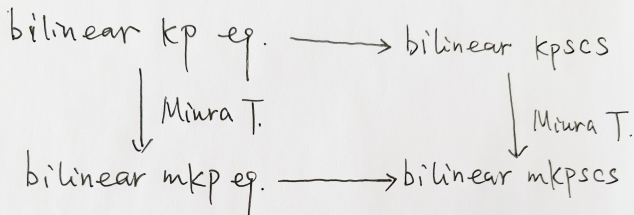 bilinear kp eq. → bilinear kpscs
↓ Miura T. ↓ Miura T.
bilinear mkp eq. → bilinear mkpscs